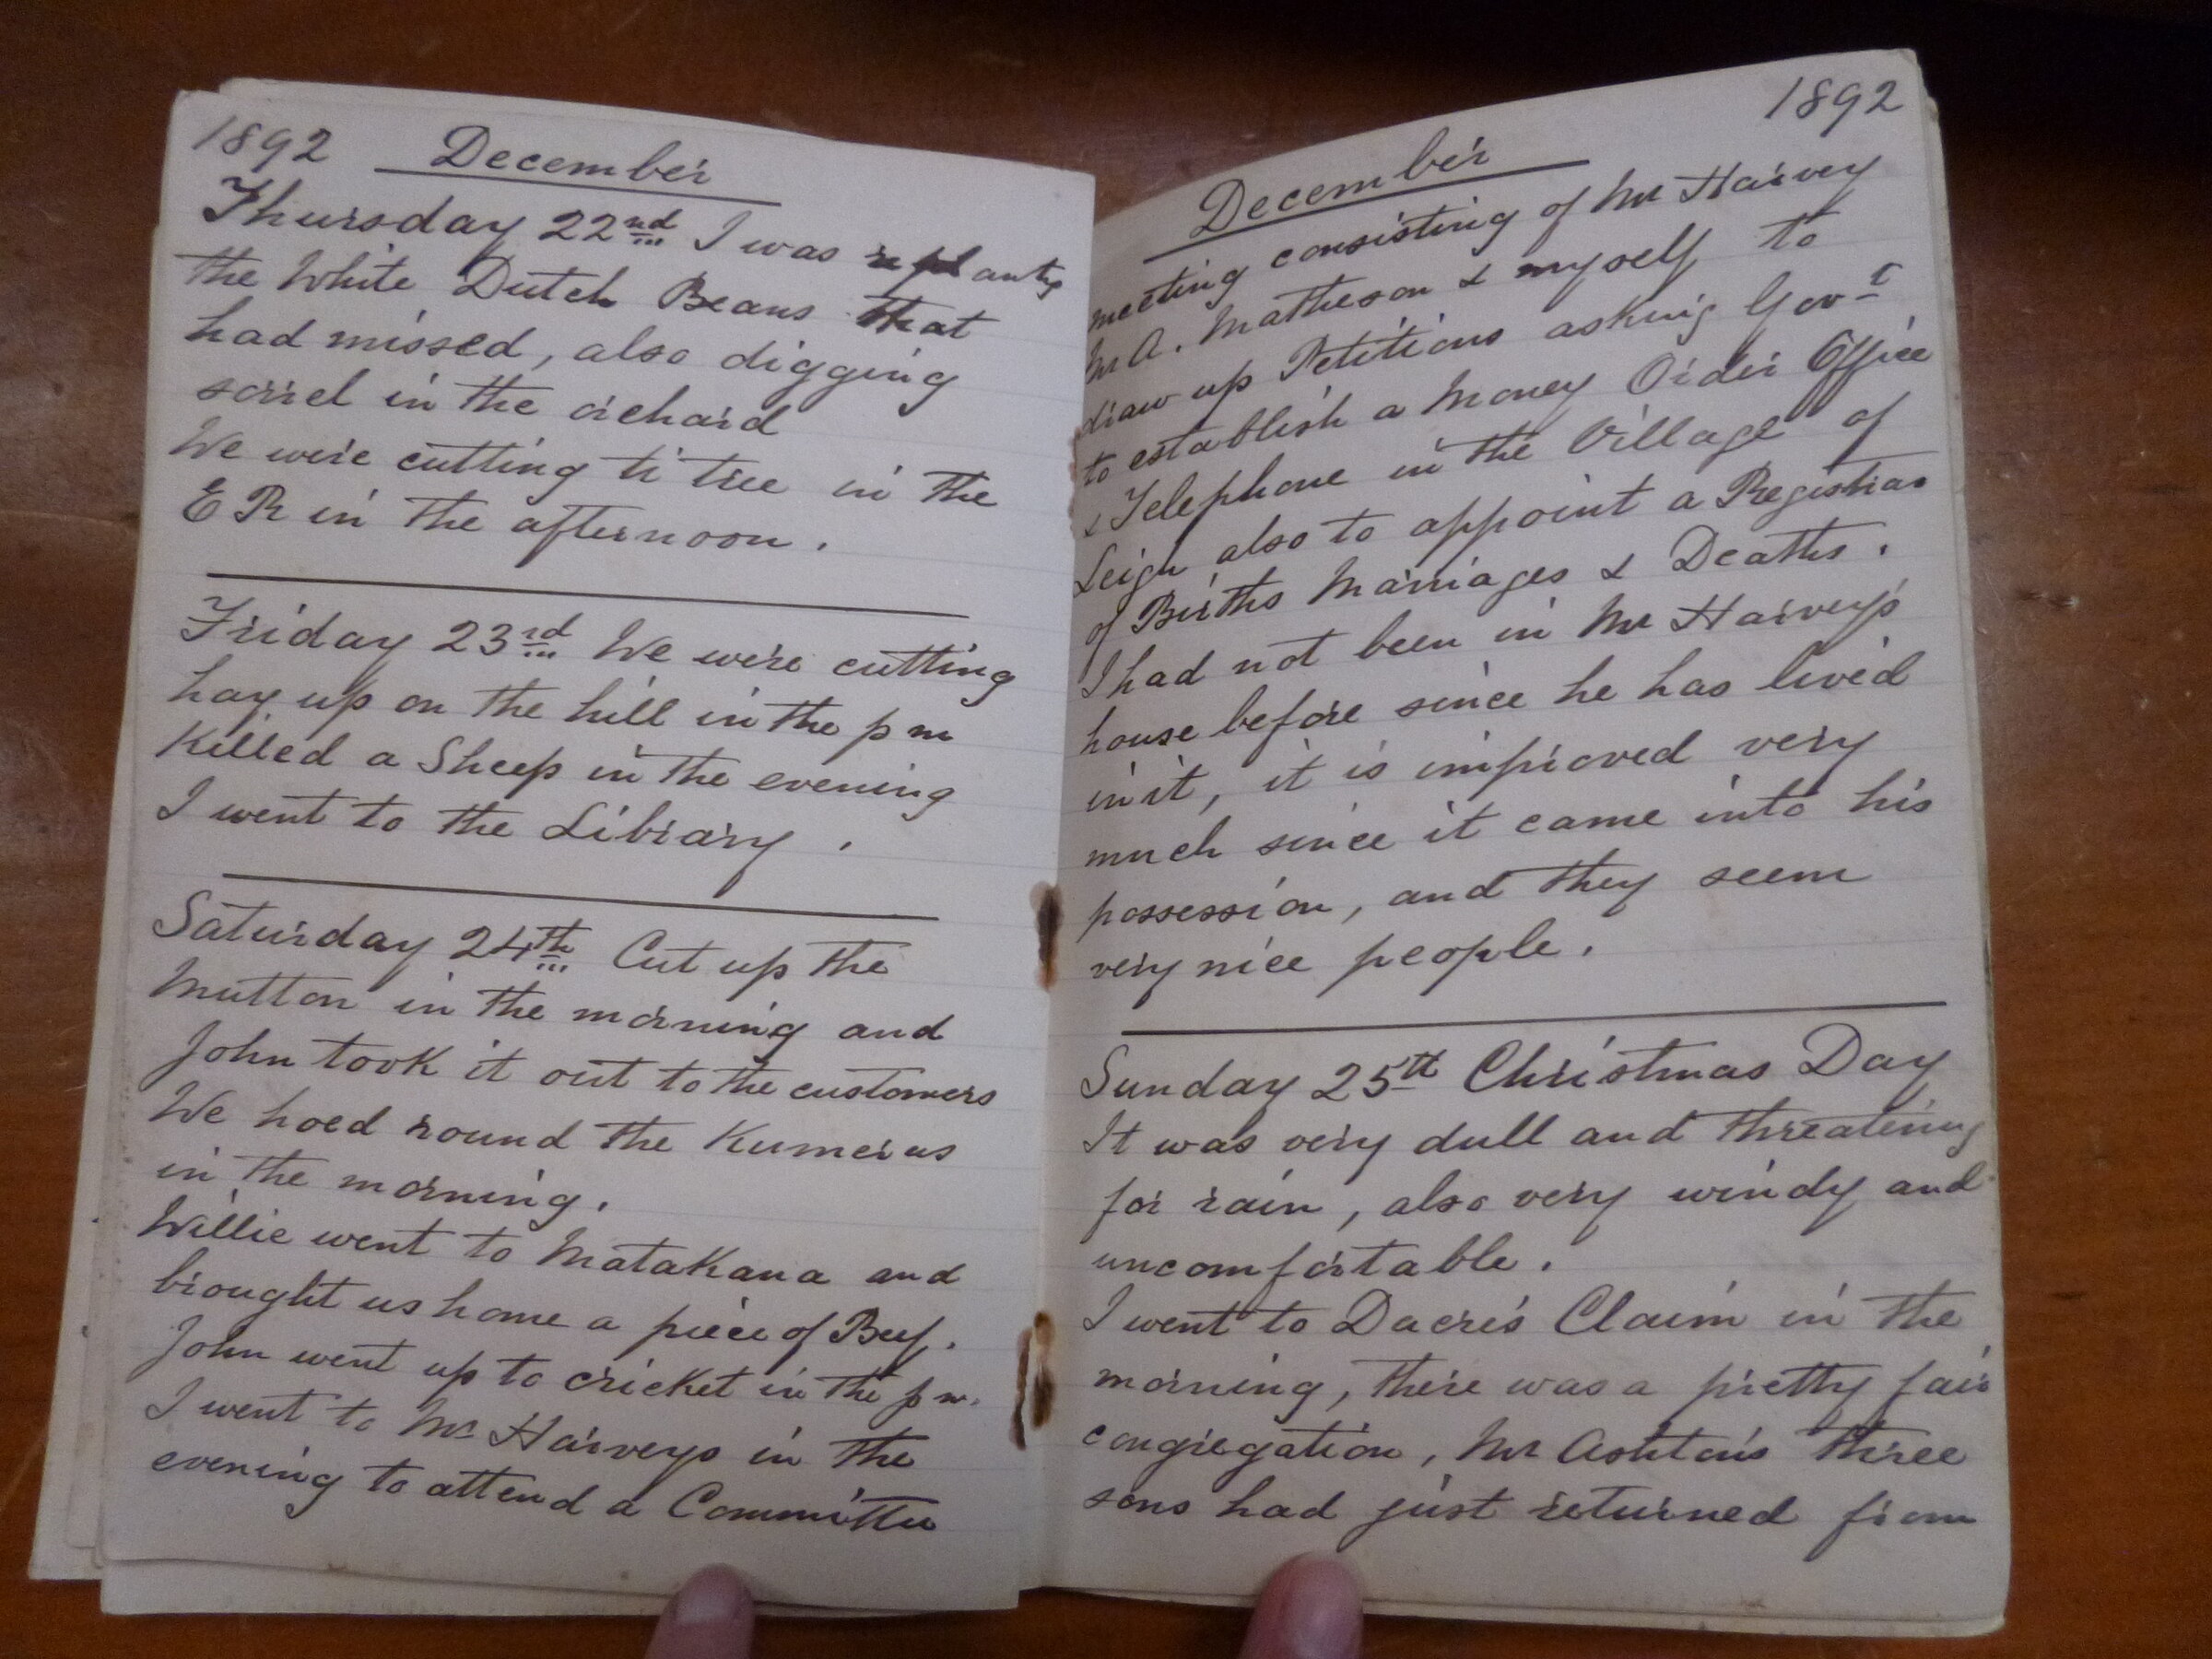 1892 December
Thursday 22nd I was replanting
the White Dutch Beans that
had missed, also digging
sorrel in the orchard
We were cutting ti tree in the
E R in the afternoon.
Friday 23rd We were cutting
hay up on the hill in the p m
Killed a Sheep in the evening
I went to the Library.
Saturday 24th Cut up the
Mutton in the morning and
John took it out to the customers
We hoed round the Kumeras
in the morning.
Willie went to Matakana and
brought us home a piece of Beef.
John went up to cricket in the p m.
I went to Mr Harveys in the
evening to attend a Committee
1892
December
meeting consisting of Mr Harvey
Mr A. Matheson & myself to
draw up Petitions asking Govt
to establish a Money Order Office
& Telephone in the Village of
Leigh also to appoint a Registrar
of Births Marriages & Deaths.
I had not been in Mr Harvey's
house before since he has lived
in it, it is improved very
much since it came into his
possession, and they seem
very nice people.
Sunday 25th Christmas Day
It was very dull and threatening
for rain, also very windy and
uncomfortable.
I went to Dacre's Claim in the
morning, there was a pretty fair
congregation, Mr Ashton's three
sons had just returned from